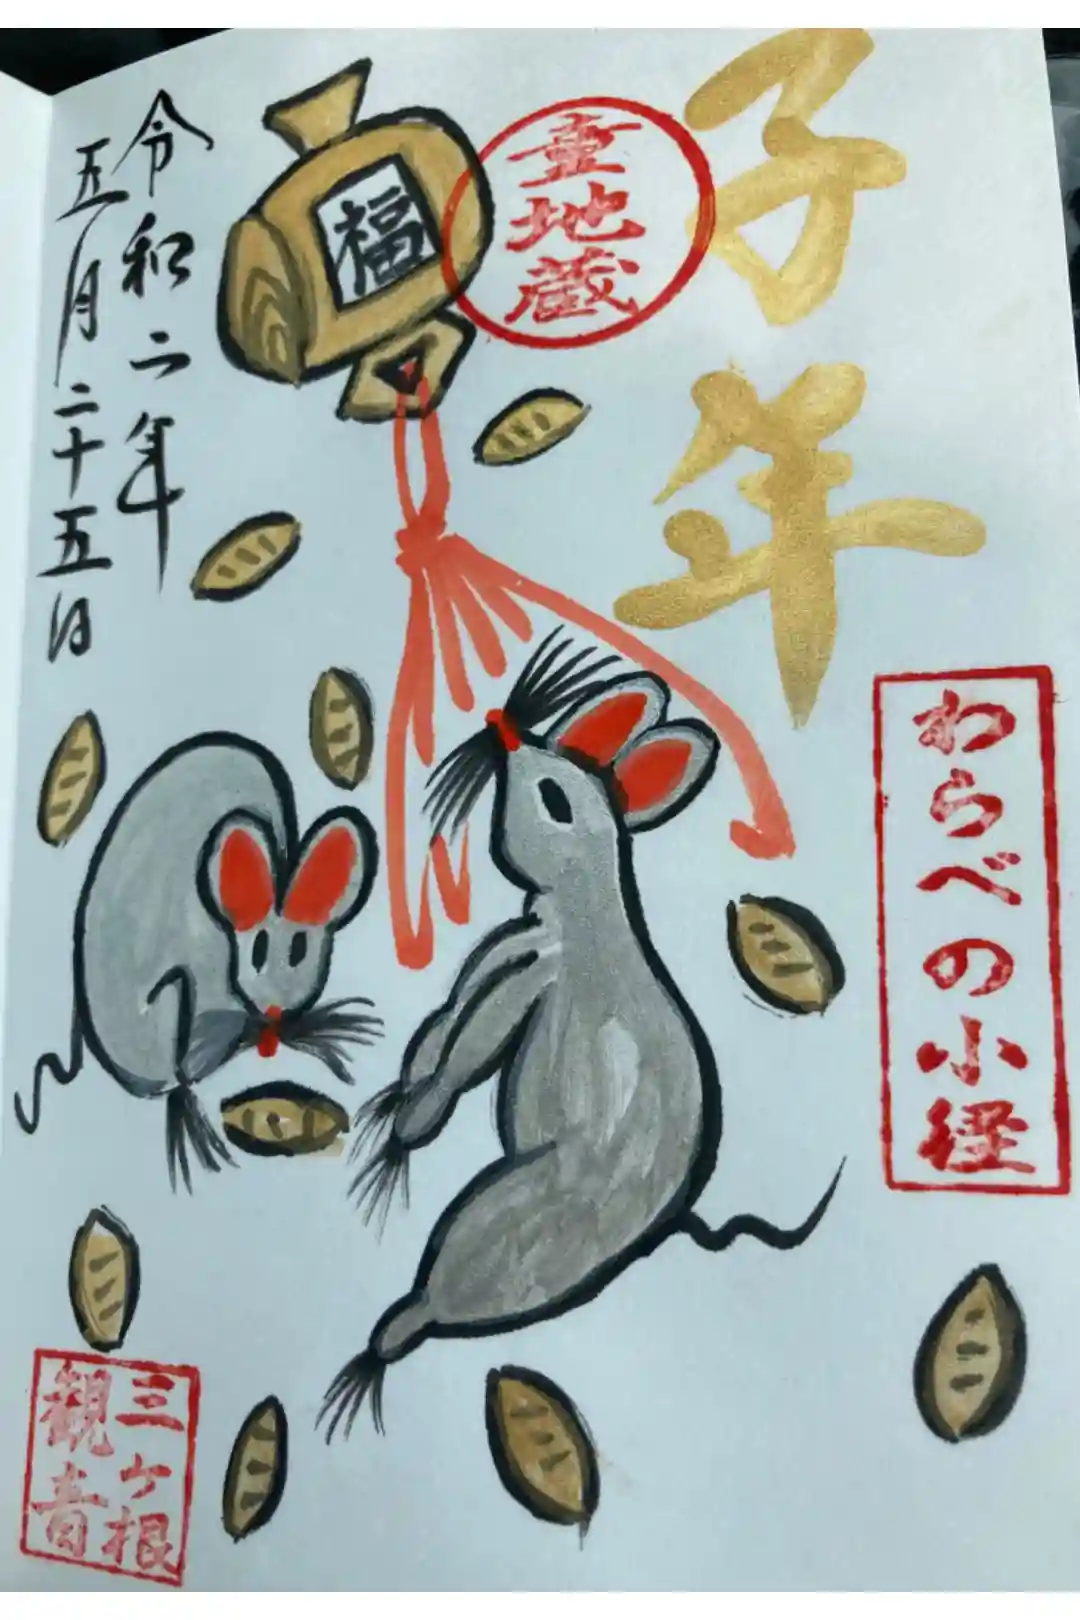 子年
童地蔵
わらべの小径
福
令和二年
五月二十五日
三ヶ根
観音